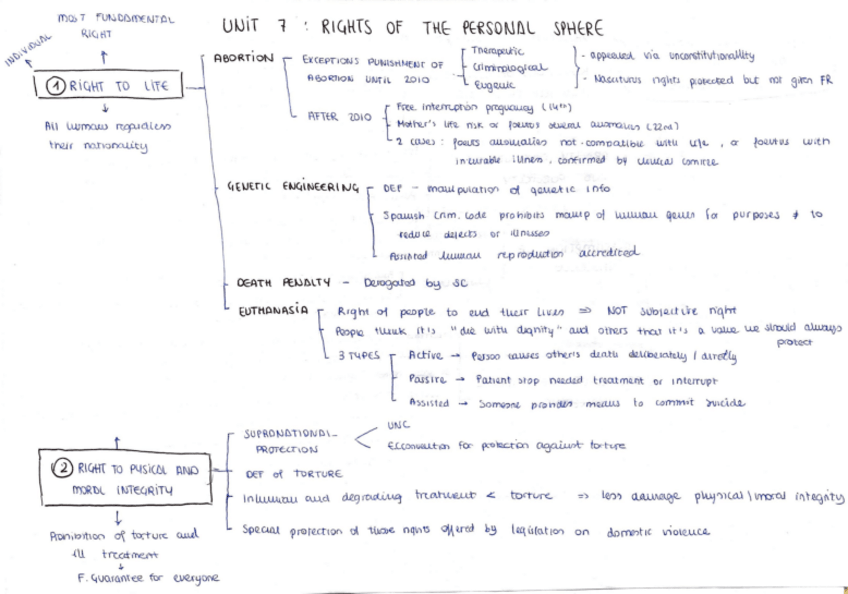 UNIT 7 : RIGHTS OF THE PERSONAL SPHERE
MOST FUNDAMENTAL
RIGHT
INDIVIDUAL
① RIGHT TO LIFE
All humans regardless
their nationality
ABORTION
EXCEPTIONS PUNISHMENT OF
ABORTION UNTIL 2010
Therapeutic
Criminological
Eugenic
- appealed via unconstitutionality
- Nasciturus rights protected but not given FR
AFTER 2010
Free interruption pregnancy (14th)
Mother's life risk or foetus several anomalies (22nd)
2 cases: foetus anomalies not-compatible with life, or foetus with
incurable illness, confirmed by clinical comitee
GENETIC ENGINEERING
DEF - manipulation of genetic info
Spanish Crim. Code prohibits manip of human genes for purposes ≠ to
reduce defects or illnesses
Assisted human reproduction accredited
DEATH PENALTY - Derogated by SC
EUTHANASIA
Right of people to end their lives ⇒ NOT subjective right
People think it's "die with dignity" and others that it's a value we should always
protect
3 TYPES
Active → Person causes other's death deliberately / directly
Passive → Patient stop needed treatment or interrupt
Assisted → Someone provides means to commit suicide
② RIGHT TO PYSICAL AND
MORAL INTEGRITY
Prohibition of torture and
ill treatment
F. Guarantee for everyone
SUPRANATIONAL
PROTECTION
UNC
EConvention for protection against torture
DEF of TORTURE
Inhuman and degrading treatment < torture ⇒ less damage physical / moral integrity
Special protection of these rights offered by legislation on domestic violence